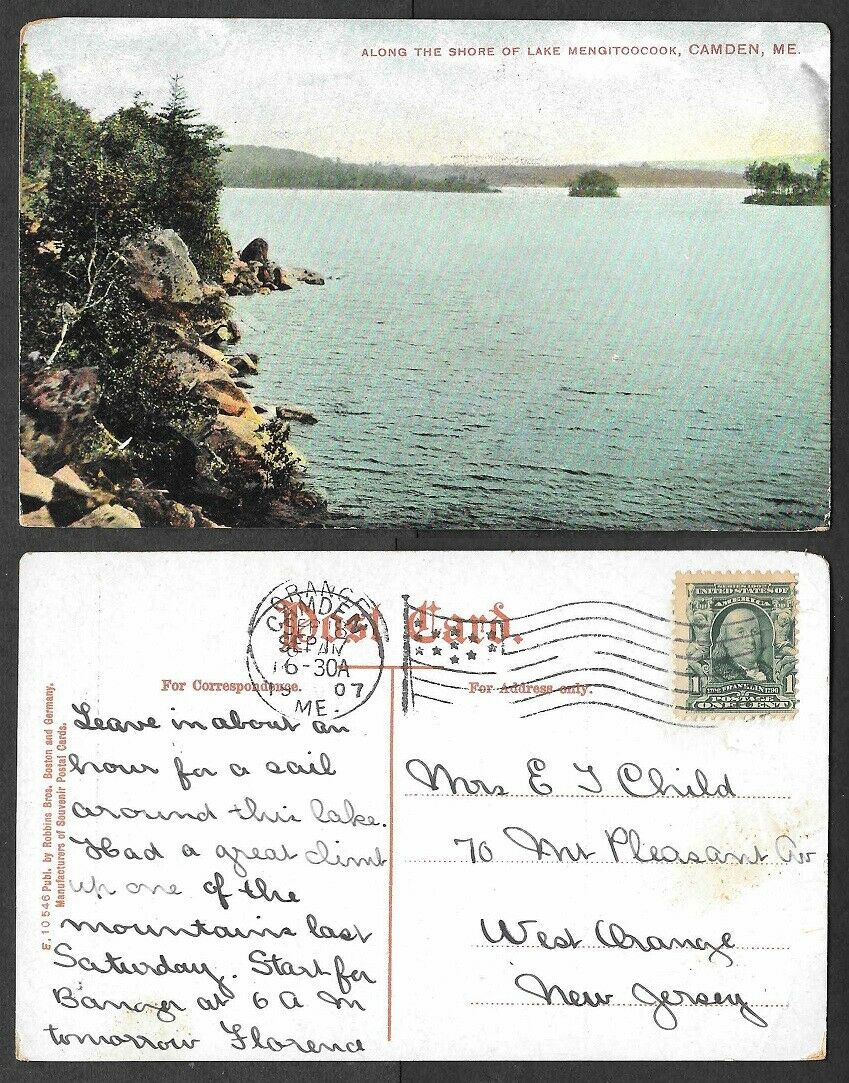 ALONG THE SHORE OF LAKE MENGITOOCOOK, CAMDEN, ME.
Post Card.
ORANGE
CAMDEN
SEP
6-30A
07
ME.
SERIES 1902
UNITED STATES OF
AMERICA
FRANKLIN
1 1
POSTAGE
ONE CENT
For Correspondence.
For Address only.
E. 10546 Publ. by Robbins Bros. Boston and Germany.
Manufacturers of Souvenir Postal Cards.
Leave in about an
hour for a sail
around this lake.
Had a great climb
up one of the
mountains last
Saturday. Start for
Bangor at 6 A M
tomorrow Florence
Mrs E J Child
70 Mt Pleasant Av
West Orange
New Jersey